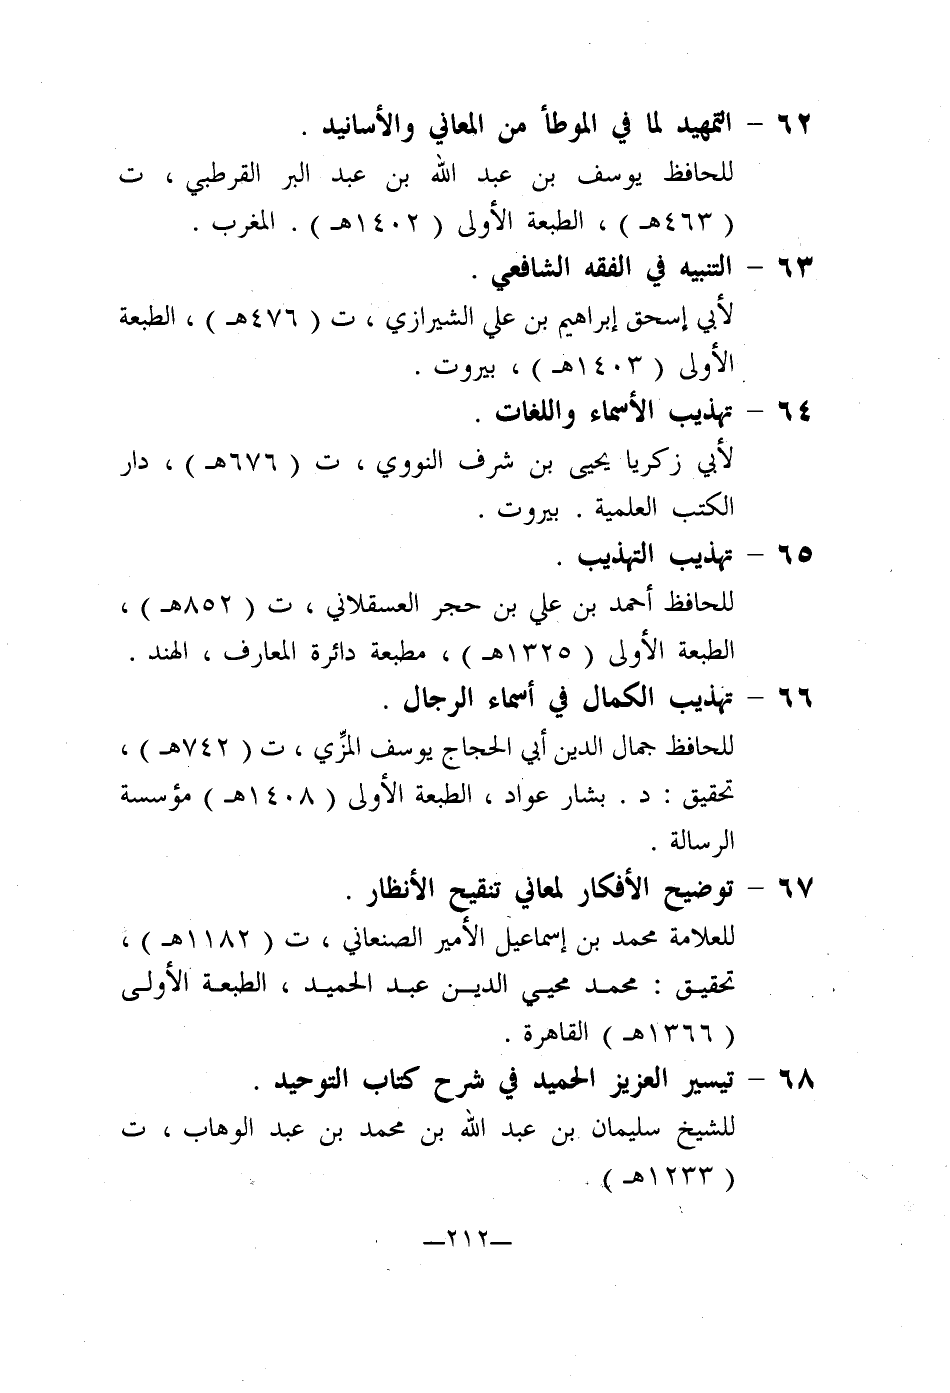 ٦٢ – التمهيد لما في الموطأ من المعاني والأسانيد .
للحافظ يوسف بن عبد الله بن عبد البر القرطبي ، ت
( ٤٦٣هـ ) ، الطبعة الأولى ( ١٤٠٢هـ ) . المغرب .
٦٣ – التنبيه في الفقه الشافعي .
لأبي إسحق إبراهيم بن علي الشيرازي ، ت ( ٤٧٦هـ ) ، الطبعة
الأولى ( ١٤٠٣هـ ) ، بيروت .
٦٤ – تهذيب الأسماء واللغات .
لأبي زكريا يحيى بن شرف النووي ، ت ( ٦٧٦هـ ) ، دار
الكتب العلمية . بيروت .
٦٥ – تهذيب التهذيب .
للحافظ أحمد بن علي بن حجر العسقلاني ، ت ( ٨٥٢هـ ) ،
الطبعة الأولى ( ١٣٢٥هـ ) ، مطبعة دائرة المعارف ، الهند .
٦٦ – تهذيب الكمال في أسماء الرجال .
للحافظ جمال الدين أبي الحجاج يوسف المزِّي ، ت ( ٧٤٢هـ ) ،
تحقيق : د . بشار عواد ، الطبعة الأولى ( ١٤٠٨هـ ) مؤسسة
الرسالة .
٦٧ – توضيح الأفكار لمعاني تنقيح الأنظار .
للعلامة محمد بن إسماعيل الأمير الصنعاني ، ت ( ١١٨٢هـ ) ،
تحقيق : محمد محيي الدين عبد الحميد ، الطبعة الأولى
( ١٣٦٦هـ ) القاهرة .
٦٨ – تيسير العزيز الحميد في شرح كتاب التوحيد .
للشيخ سليمان بن عبد الله بن محمد بن عبد الوهاب ، ت
( ١٢٣٣هـ ) .
—٢١٢—